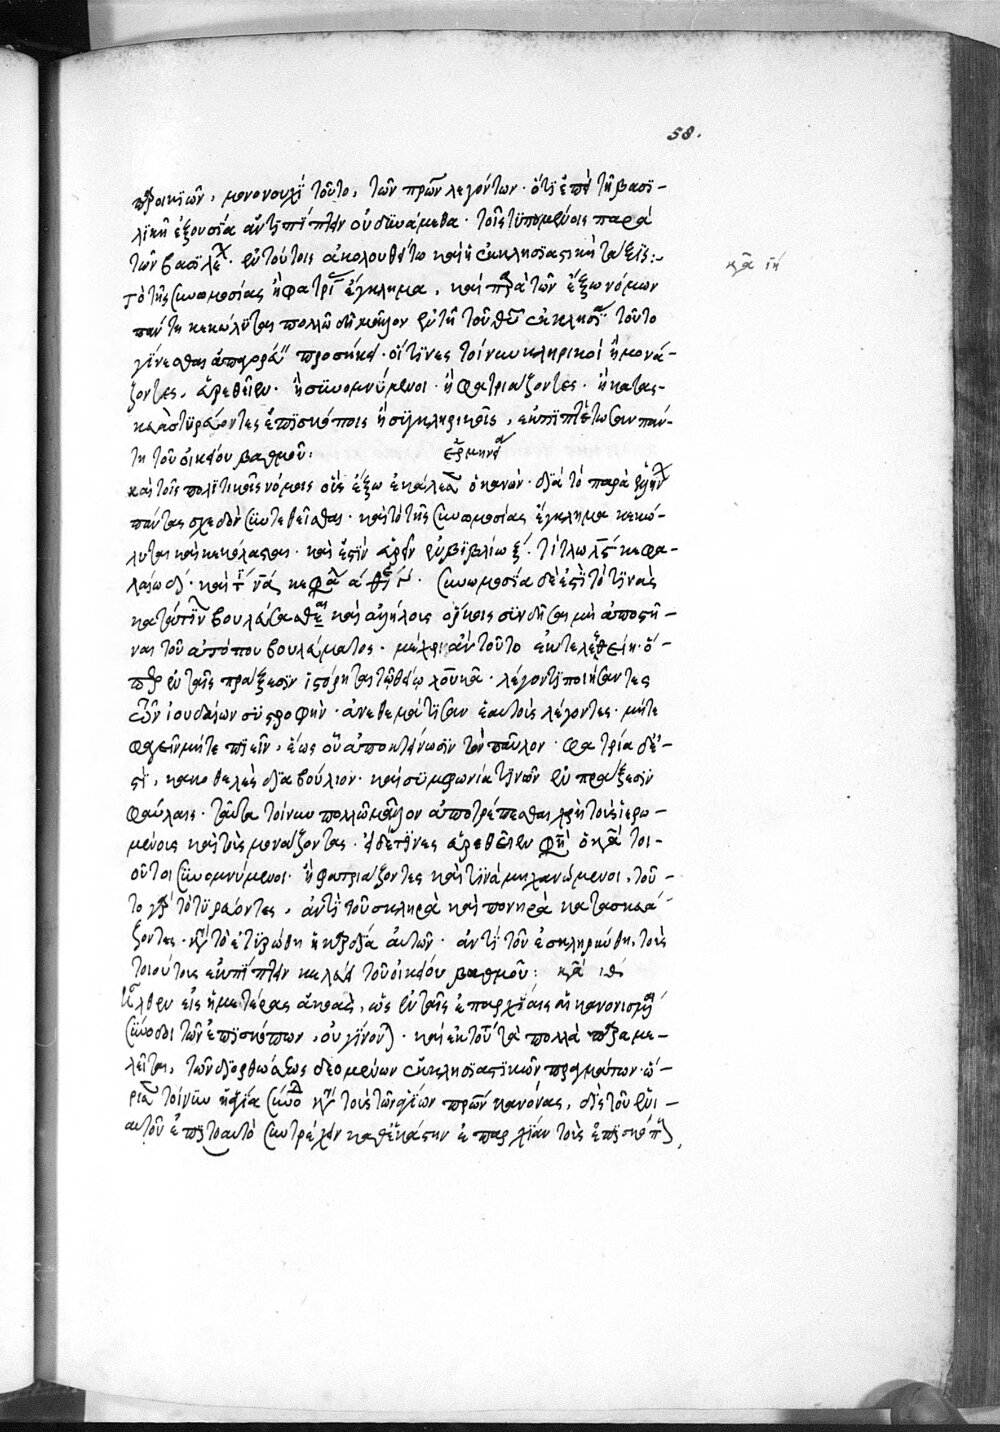 58.
παροικιῶν, μονονουχὶ τοῦτο, τῶν πατέρων λεγόντων· ὅτι ἐπεὶ τῇ βασι-
λικῇ ἐξουσίᾳ ἀντιπίπτειν οὐ δυνάμεθα· τοῖς τυπουμένοις παρὰ
τῶν βασιλέων· ἐν τούτοις ἀκολουθείτω καὶ ἡ ἐκκλησιαστικὴ τάξις:-
κα ιη
Τὸ τῆς συνωμοσίας ἢ φατρίας ἔγκλημα, καὶ παρὰ τῶν ἔξω νόμων
πάντῃ κεκώλυται πολλῷ δὴ μᾶλλον ἐν τῇ τοῦ θεοῦ ἐκκλησίᾳ τοῦτο
γίνεσθαι ἀπαγορεύειν προσήκει· εἴ τινες τοίνυν κληρικοὶ ἢ μονά-
ζοντες, εὑρεθεῖεν· ἢ συνομνύμενοι· ἢ φατριάζοντες· ἢ κατασ-
κευὰς τυρεύοντες ἐπισκόποις ἢ συγκληρικοῖς, ἐκπιπτέτωσαν πάν-
τῃ τοῦ οἰκείου βαθμοῦ: ἑρμηνεία
καὶ τοῖς πολιτικοῖς νόμοις οὓς ἔξω ἐκάλεσεν ὁ κανὼν· διὰ τὸ παρὰ
πάντας σχεδὸν συντεθεῖσθαι· καὶ τὸ τῆς συνωμοσίας ἔγκλημα κεκώ-
λυται καὶ κεκόλασται· καὶ ἔστιν εὑρεῖν ἐν βιβλίῳ ξ· τίτλῳ λς κεφα-
λαίῳ
συνωμοσία δέ ἐστι τὸ τινὰς
κατά τινων βουλεύσασθαι καὶ ἀλλήλοις ὅρκοις συνδῆσαι μὴ ἀποστῆ-
ναι τοῦ ἀτόπου βουλεύματος· μέχρις ἂν τοῦτο ἐκτελεσθείη· ὅ-
περ ἐν ταῖς πράξεσιν ἱστόρηται τῷ θείῳ λουκᾷ· λέγοντι ποιήσαντες
τῶν ἰουδαίων συστροφὴν· ἀνεθεμάτισαν ἑαυτοὺς λέγοντες· μήτε
φαγεῖν μήτε πιεῖν, ἕως οὗ ἀποκτείνωσιν τὸν παῦλον· φατρία δέ ἐ-
στι, κακοθελὲς διαβούλιον· καὶ συμφωνία τινῶν ἐν πράξεσιν
φαύλαις· ταῦτα τοίνυν πολλῷ μᾶλλον ἀποτρέπεσθαι χρὴ τοὺς ἱερω-
μένοις καὶ τοὺς μονάζοντας· εἰ δέ τινες εὑρεθεῖεν φησὶ ὁ κα τοι-
οῦτοι συνομνύμενοι· ἢ φατριάζοντες καὶ τινὰ μηχανώμενοι, τοῦ-
το γὰρ τὸ τυρεύοντες, ἀντὶ τοῦ σκληρὰ καὶ πονηρὰ κατασκευά-
ζοντες· κατὰ τὸ ἐτυρώθη ἡ καρδία αὐτῶν· ἀντὶ τοῦ ἐσκληρύνθη, τοὺς
τοιούτους ἐκπίπτειν κελεύει τοῦ οἰκείου βαθμοῦ: κα ιθ
Ἦλθεν εἰς ἡμετέρας ἀκοὰς, ὡς ἐν ταῖς ἐπαρχίαις αἱ κανονισμέναι
σύνοδοι τῶν ἐπισκόπων, οὐ γίνονται· καὶ ἐκ τούτου πολλὰ παραμε-
λεῖται, τῶν διορθώσεως δεομένων ἐκκλησιαστικῶν πραγμάτων· ὥ-
ρισεν τοίνυν ἡ ἁγία σύνοδος κατὰ τοὺς τῶν ἁγίων πατέρων κανόνας, δὶς τοῦ ἐνι-
αυτοῦ ἐπὶ τὸ αὐτὸ συντρέχειν καθ' ἑκάστην ἐπαρχίαν τοὺς ἐπισκόπους,